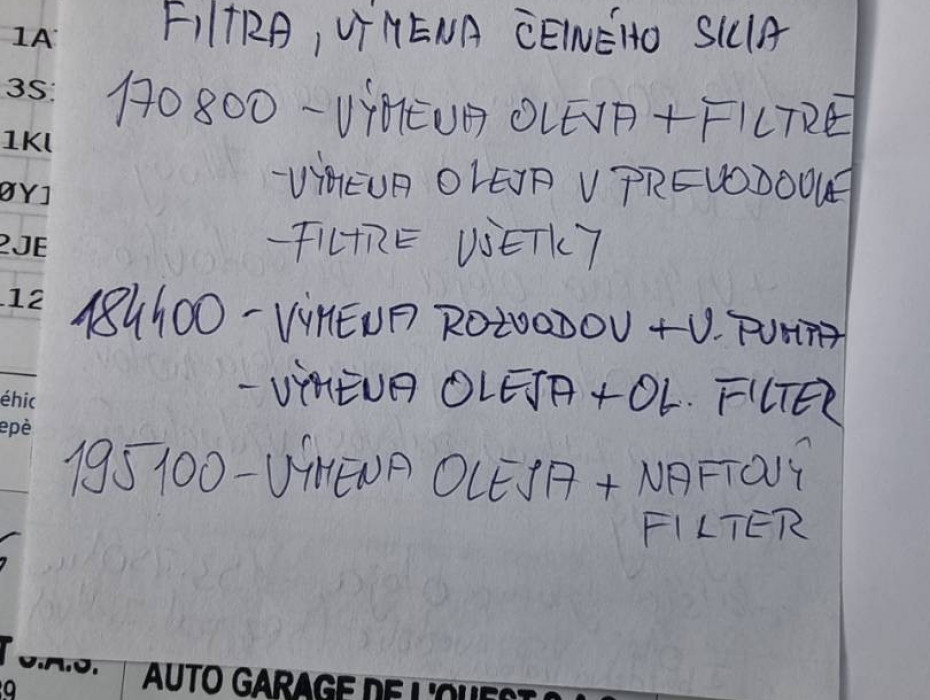 FILTRA, VÝMENA ČELNÉHO SKLA
170800 - VÝMENA OLEJA + FILTRE
- VÝMENA OLEJA V PREVODOVKE
- FILTRE VŠETKY
184400 - VÝMENA ROZVODOV + V. PUMPA
- VÝMENA OLEJA + OL. FILTER
195100 - VÝMENA OLEJA + NAFTOVÝ
FILTER
1A
3S
1K
0Y1
2JE
12
éhic
epè
T S.A.S.
39
AUTO GARAGE DE L'OUEST S.A.S.